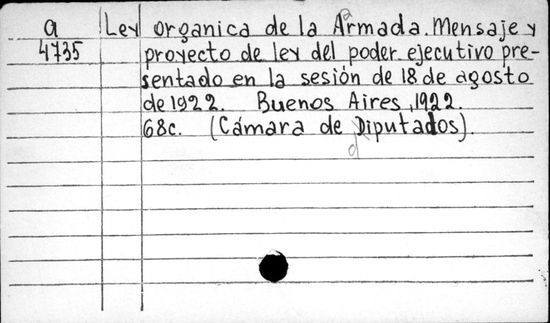 a Ley organica de la Armada. Mensaje y
4735 proyecto de ley del poder ejecutivo pre-
sentado en la sesión de 18 de agosto
de 1922. Buenos Aires, 1922.
68c. (Cámara de Diputados).
d